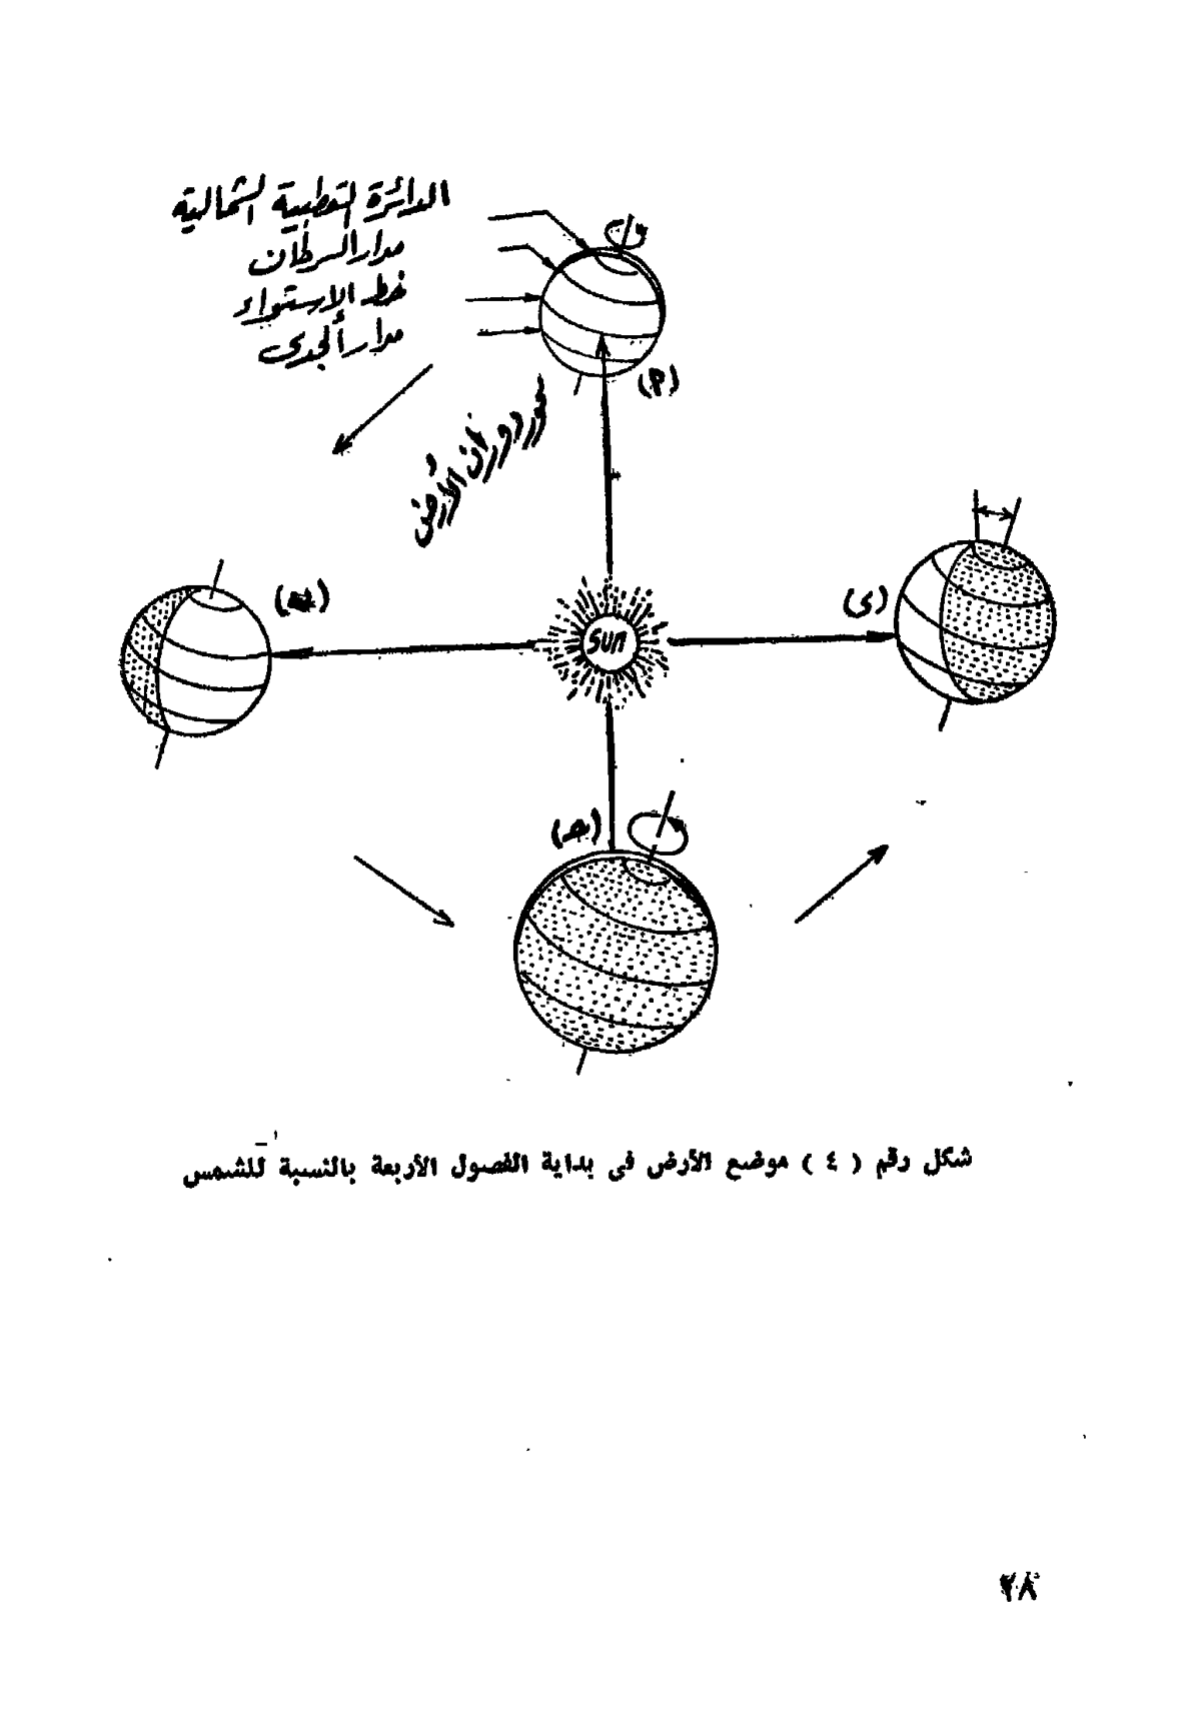 الدائرة القطبية الشمالية
مدار السرطان
خط الاستواء
مدار الجدى
محور دوران الأرض
(م)
(ب)
sun
(ى)
(حـ)
شكل رقم ( ٤ ) موضع الأرض فى بداية الفصول الأربعة بالنسبة للشمس
٢٨